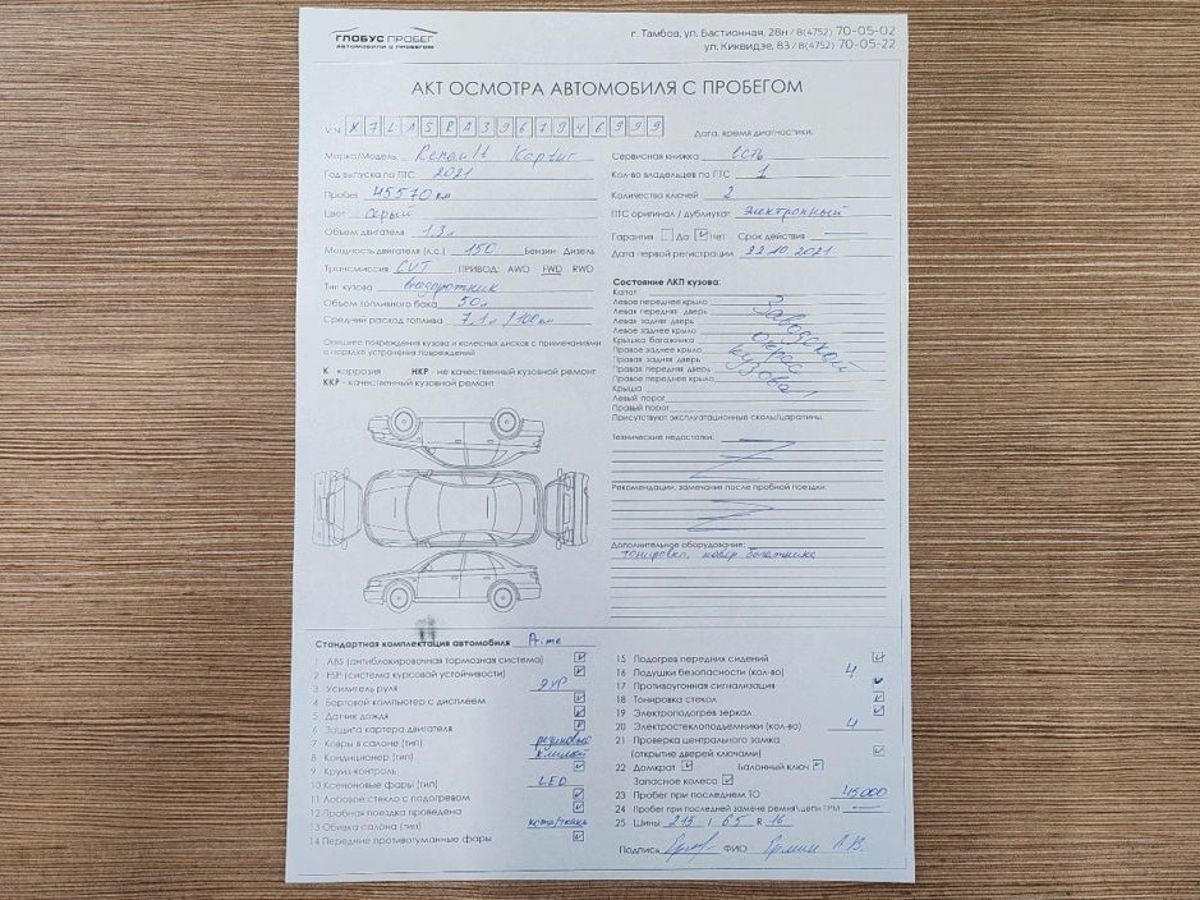 ГЛОБУС ПРОБЕГ
АВТОМОБИЛИ С ПРОБЕГОМ
г. Тамбов, ул. Бастионная, 28н / 8(4752) 70-05-02
ул. Киквидзе, 83 / 8(4752) 70-05-22
АКТ ОСМОТРА АВТОМОБИЛЯ С ПРОБЕГОМ
VIN X7LASRA3967946999
Дата, время диагностики:
Марка/Модель Renault Kaptur
Год выпуска по ПТС 2021
Пробег 45570 км
Цвет Серый
Объем двигателя 1,3л
Мощность двигателя (л.с.) 150 Бензин Дизель
Трансмиссия CVT ПРИВОД: AWD FWD RWD
Тип кузова внедорожник
Объем топливного бака 50л
Средний расход топлива 7,1л / 100км
Опишите повреждения кузова и колесных дисков с примечаниями
о порядке устранения повреждений
К коррозия НКР - не качественный кузовной ремонт
ККР - качественный кузовной ремонт
Сервисная книжка есть
Кол-во владельцев по ПТС 1
Количество ключей 2
ПТС оригинал / дубликат Электронный
Гарантия Да Нет Срок действия
Дата первой регистрации 22.10.2021
Состояние ЛКП кузова:
Капот
Левое переднее крыло
Левая передняя дверь
Левая задняя дверь
Левое заднее крыло
Крышка багажника
Правое заднее крыло
Правая задняя дверь
Правая передняя дверь
Правое переднее крыло
Крыша
Левый порог
Правый порог
Заводской
окрас
кузова
Присутствуют эксплуатационные сколы/царапины.
Технические недостатки:
Рекомендации, замечания после пробной поездки:
Дополнительное оборудование:
тонировка, ковер багажника
Стандартная комплектация автомобиля Prime
1 ABS (антиблокировочная тормозная система)
2 ESP (система курсовой устойчивости)
3 Усилитель руля ЭУР
4 Бортовой компьютер с дисплеем
5 Датчик дождя
6 Защита картера двигателя
7 Ковры в салоне (тип) резиновые
8 Кондиционер (тип) климат
9 Круиз-контроль
10 Ксеноновые фары (тип) LED
11 Лобовое стекло с подогревом
12 Пробная поездка проведена
13 Обивка салона (тип) кожа/ткань
14 Передние противотуманные фары
15 Подогрев передних сидений
16 Подушки безопасности (кол-во) 4
17 Противоугонная сигнализация
18 Тонировка стекол
19 Электроподогрев зеркал
20 Электростеклоподъемники (кол-во) 4
21 Проверка центрального замка
(открытие дверей ключами)
22 Домкрат Балонный ключ
Запасное колесо
23 Пробег при последнем ТО 45000
24 Пробег при последней замене ремня/цепи ГРМ
25 Шины 215 / 65 R 16
Подпись ФИО